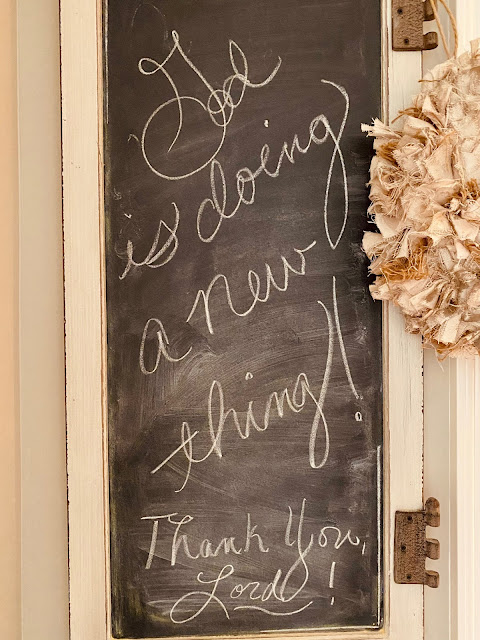 God
is doing
a new
thing!
Thank You,
Lord!